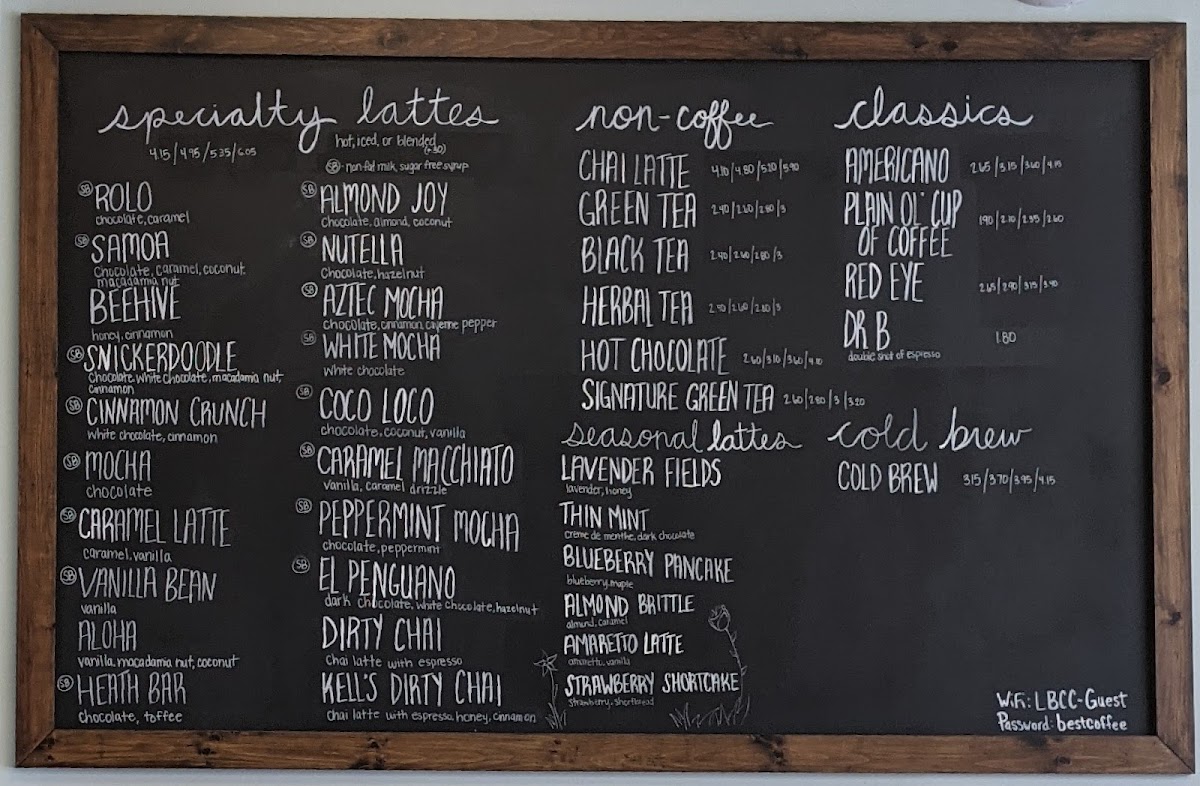 specialty lattes
4.15/4.95/5.35/6.05
hot, iced, or blended
(+.30)
SB - non-fat milk, sugar free syrup
SB ROLO
chocolate, caramel
SB SAMOA
Chocolate, caramel, coconut,
macadamia nut
BEEHIVE
honey, cinnamon
SB SNICKERDOODLE
Chocolate, white chocolate, macadamia nut,
cinnamon
SB CINNAMON CRUNCH
white chocolate, cinnamon
SB MOCHA
chocolate
SB CARAMEL LATTE
caramel, vanilla
SB VANILLA BEAN
vanilla
ALOHA
vanilla, macadamia nut, coconut
SB HEATH BAR
chocolate, toffee
SB ALMOND JOY
Chocolate, almond, coconut
SB NUTELLA
Chocolate, hazelnut
SB AZTEC MOCHA
chocolate, cinnamon, cayenne pepper
SB WHITE MOCHA
white chocolate
SB COCO LOCO
chocolate, coconut, vanilla
SB CARAMEL MACCHIATO
vanilla, caramel drizzle
SB PEPPERMINT MOCHA
chocolate, peppermint
SB EL PENGUANO
dark chocolate, white chocolate, hazelnut
DIRTY CHAI
Chai latte with espresso
KELL'S DIRTY CHAI
Chai latte with espresso, honey, cinnamon
non-coffee
CHAI LATTE 4.10/4.80/5.20/5.90
GREEN TEA 2.40/2.60/2.80/3
BLACK TEA 2.40/2.60/2.80/3
HERBAL TEA 2.40/2.60/2.80/3
HOT CHOCOLATE 2.60/3.10/3.60/4.10
SIGNATURE GREEN TEA 2.60/2.80/3/3.20
seasonal lattes
LAVENDER FIELDS
lavender, honey
THIN MINT
creme de menthe, dark chocolate
BLUEBERRY PANCAKE
blueberry, maple
ALMOND BRITTLE
almond, caramel
AMARETTO LATTE
amaretto, vanilla
STRAWBERRY SHORTCAKE
Strawberry, shortbread
classics
AMERICANO 2.65/3.15/3.60/4.15
PLAIN OL' CUP
OF COFFEE 1.90/2.10/2.35/2.60
RED EYE 2.65/2.90/3.15/3.40
DR B 1.80
double shot of espresso
cold brew
COLD BREW 3.15/3.70/3.95/4.15
WiFi: LBCC-Guest
Password: bestcoffee